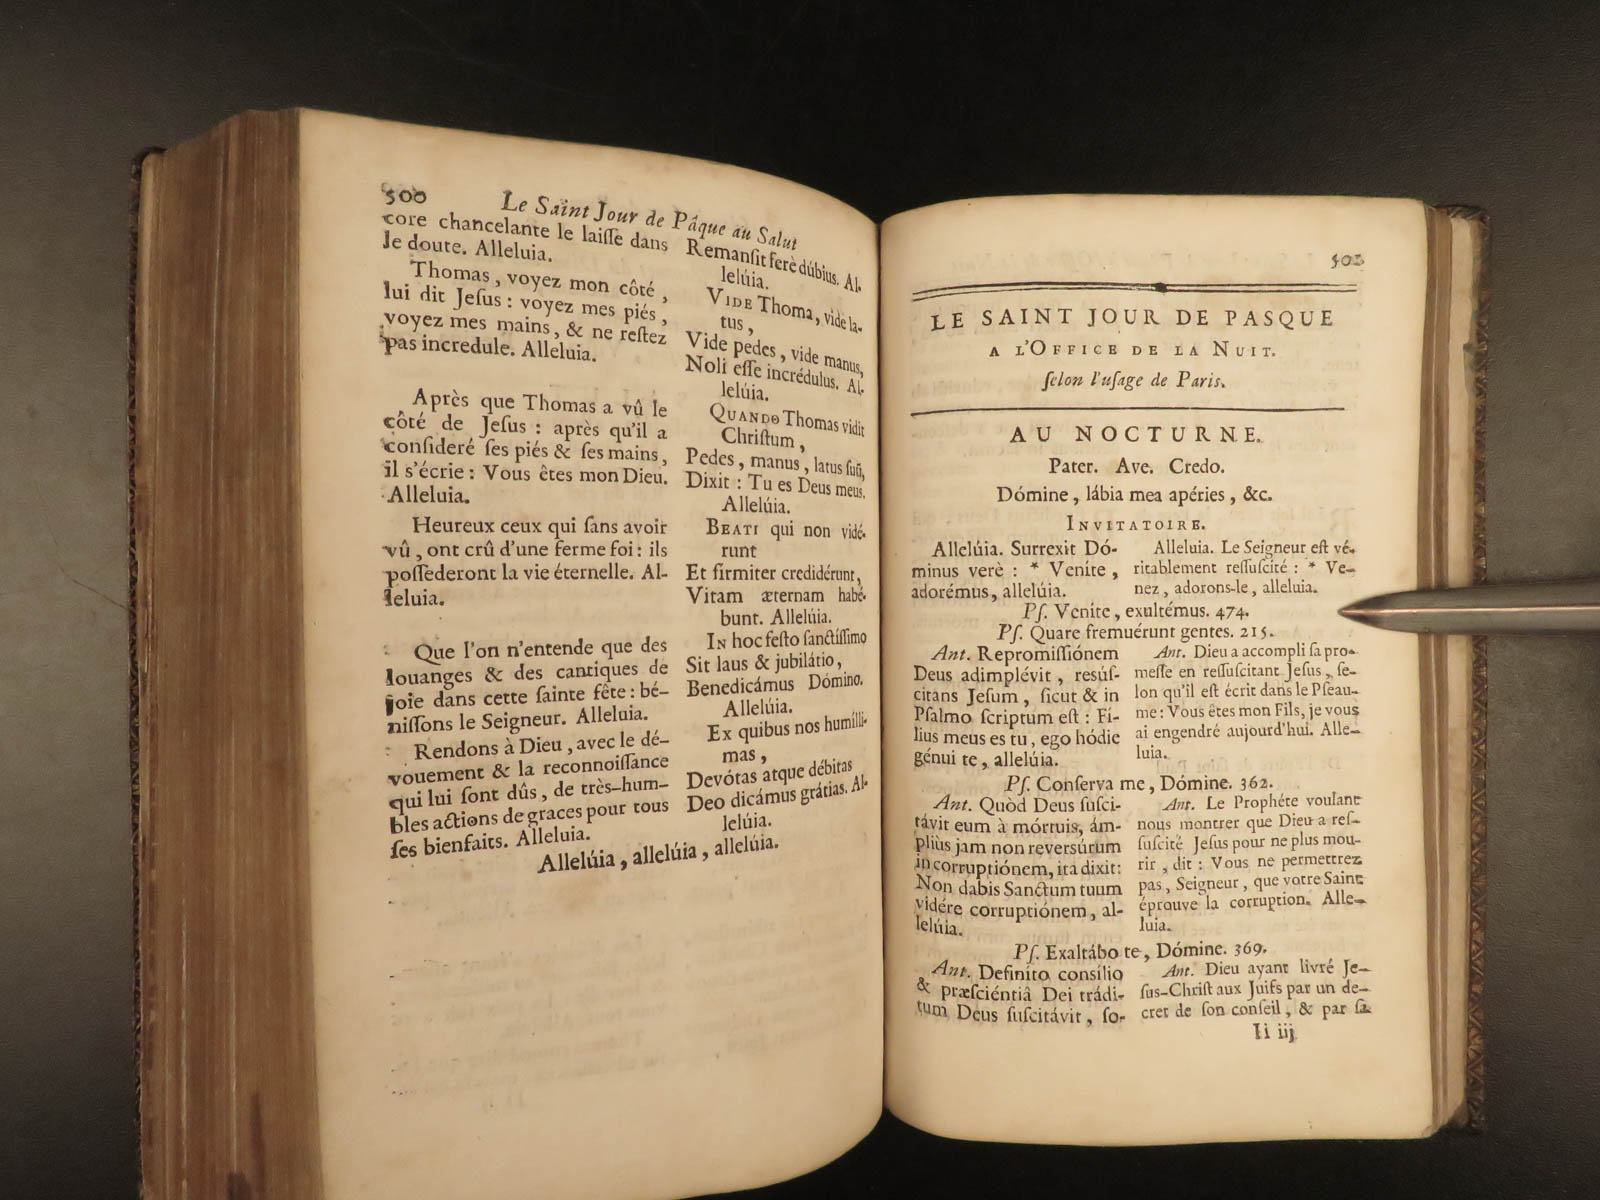 500 Le Saint Jour de Pâque au Salut
core chancelante le laiſſe dans
le doute. Alleluia.
Thomas, voyez mon côté,
lui dit Jeſus : voyez mes piés,
voyez mes mains, & ne reſtez
pas incredule. Alleluia.
Après que Thomas a vû le
côté de Jeſus : après qu'il a
conſideré ſes piés & ſes mains,
il s'écrie : Vous êtes mon Dieu.
Alleluia.
Heureux ceux qui ſans avoir
vû, ont crû d'une ferme foi : ils
poſſederont la vie éternelle. Al-
leluia.
Que l'on n'entende que des
louanges & des cantiques de
joie dans cette ſainte fête : bé-
niſſons le Seigneur. Alleluia.
Rendons à Dieu, avec le dé-
vouement & la reconnoiſſance
qui lui ſont dûs, de très-hum-
bles actions de graces pour tous
ſes bienfaits. Alleluia.
Remanſit ferè dúbius. Al-
lelúia.
VIDE Thoma, vide la-
tus,
Vide pedes, vide manus,
Noli eſſe incrédulus. Al-
lelúia.
QUANDO Thomas vidit
Chriſtum,
Pedes, manus, latus ſuũ,
Dixit : Tu es Deus meus.
Allelúia.
BEATI qui non vidé-
runt
Et firmiter credidérunt,
Vitam æternam habé-
bunt. Allelúia.
IN hoc feſto ſanctíſſimo
Sit laus & jubilátio,
Benedicámus Dómino.
Allelúia.
Ex quibus nos humílli-
mas,
Devótas atque débitas
Deo dicámus grátias. Al-
lelúia.
Allelúia, allelúia, allelúia.
LE SAINT JOUR DE PASQUE
A L'OFFICE DE LA NUIT.
ſelon l'uſage de Paris.
AU NOCTURNE.
Pater. Ave. Credo.
Dómine, lábia mea apéries, &c.
INVITATOIRE.
Allelúia. Surrexit Dó-
minus verè : * Veníte,
adorémus, allelúia.
Alleluia. Le Seigneur eſt vé-
ritablement reſſuſcité : * Ve-
nez, adorons-le, alleluia.
Pſ. Veníte, exultémus. 474.
Pſ. Quare fremuérunt gentes. 215.
Ant. Repromiſſiónem
Deus adimplévit, resúſ-
citans Jeſum, ſicut & in
Pſalmo ſcriptum eſt : Fí-
lius meus es tu, ego hódie
génui te, allelúia.
Ant. Dieu a accompli ſa pro-
meſſe en reſſuſcitant Jeſus, ſe-
lon qu'il eſt écrit dans le Pſeau-
me : Vous êtes mon Fils, je vous
ai engendré aujourd'hui. Alle-
luia.
Pſ. Conſerva me, Dómine. 362.
Ant. Quòd Deus ſuſci-
távit eum à mórtuis, ám-
pliùs jam non reversúrum
in corruptiónem, ita dixit :
Non dabis Sanctum tuum
vidére corruptiónem, al-
lelúia.
Ant. Le Prophéte voulant
nous montrer que Dieu a reſ-
ſuſcité Jeſus pour ne plus mou-
rir, dit : Vous ne permettrez
pas, Seigneur, que votre Saint
éprouve la corruption. Alle-
luia.
Pſ. Exaltábo te, Dómine. 369.
Ant. Definíto consílio
& præſciéntiâ Dei trádi-
tum Deus ſuſcitávit, ſo-
Ant. Dieu ayant livré Je-
ſus-Chriſt aux Juifs par un de-
cret de ſon conſeil, & par ſa
Ii iij